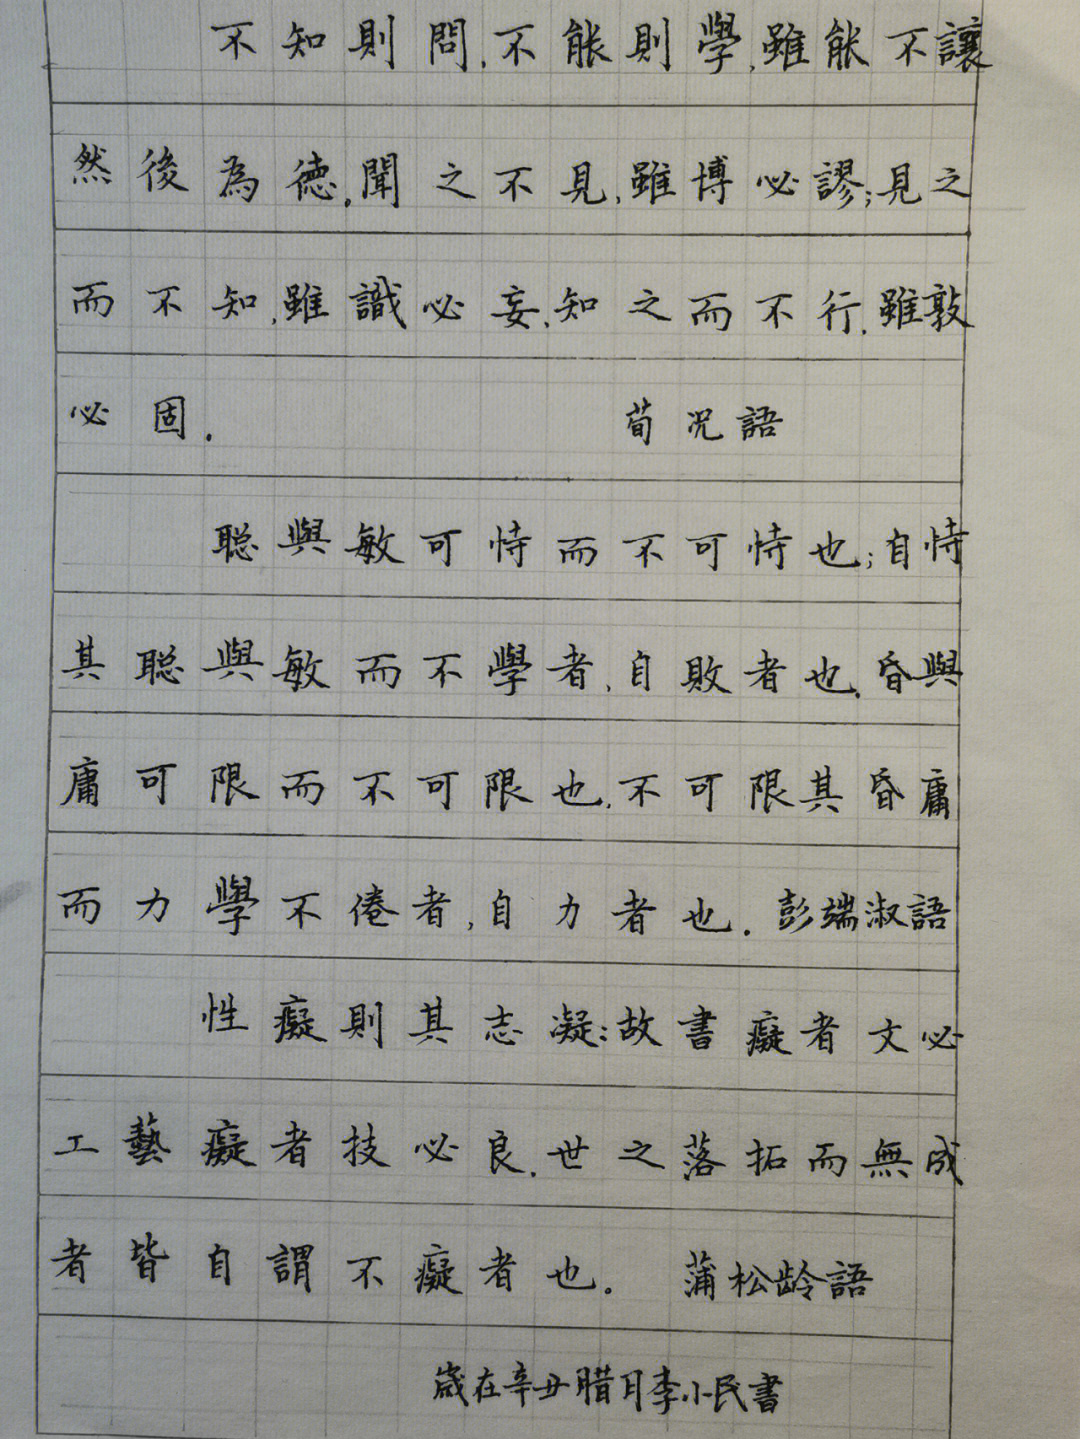 不知則問,不能則學,雖能不讓
然後為德,聞之不見,雖博必謬;見之
而不知,雖識必妄,知之而不行,雖敦
必固. 荀況語
聰與敏可恃而不可恃也;自恃
其聰與敏而不學者,自敗者也,昏與
庸可限而不可限也,不可限其昏庸
而力學不倦者,自力者也. 彭端淑語
性癡則其志凝:故書癡者文必
工藝癡者技必良,世之落拓而無成
者皆自謂不癡者也. 蒲松齡語
歲在辛丑腊月李小民書